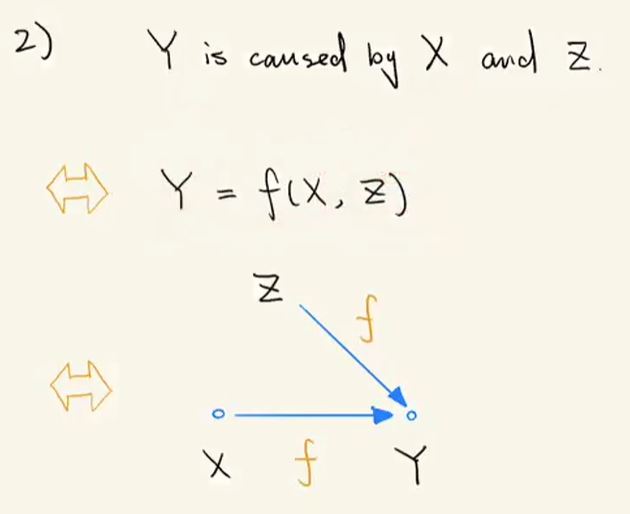 2) Y is caused by X and Z.
⇔ Y = f(X, Z)
Z
f
⇔
X f Y